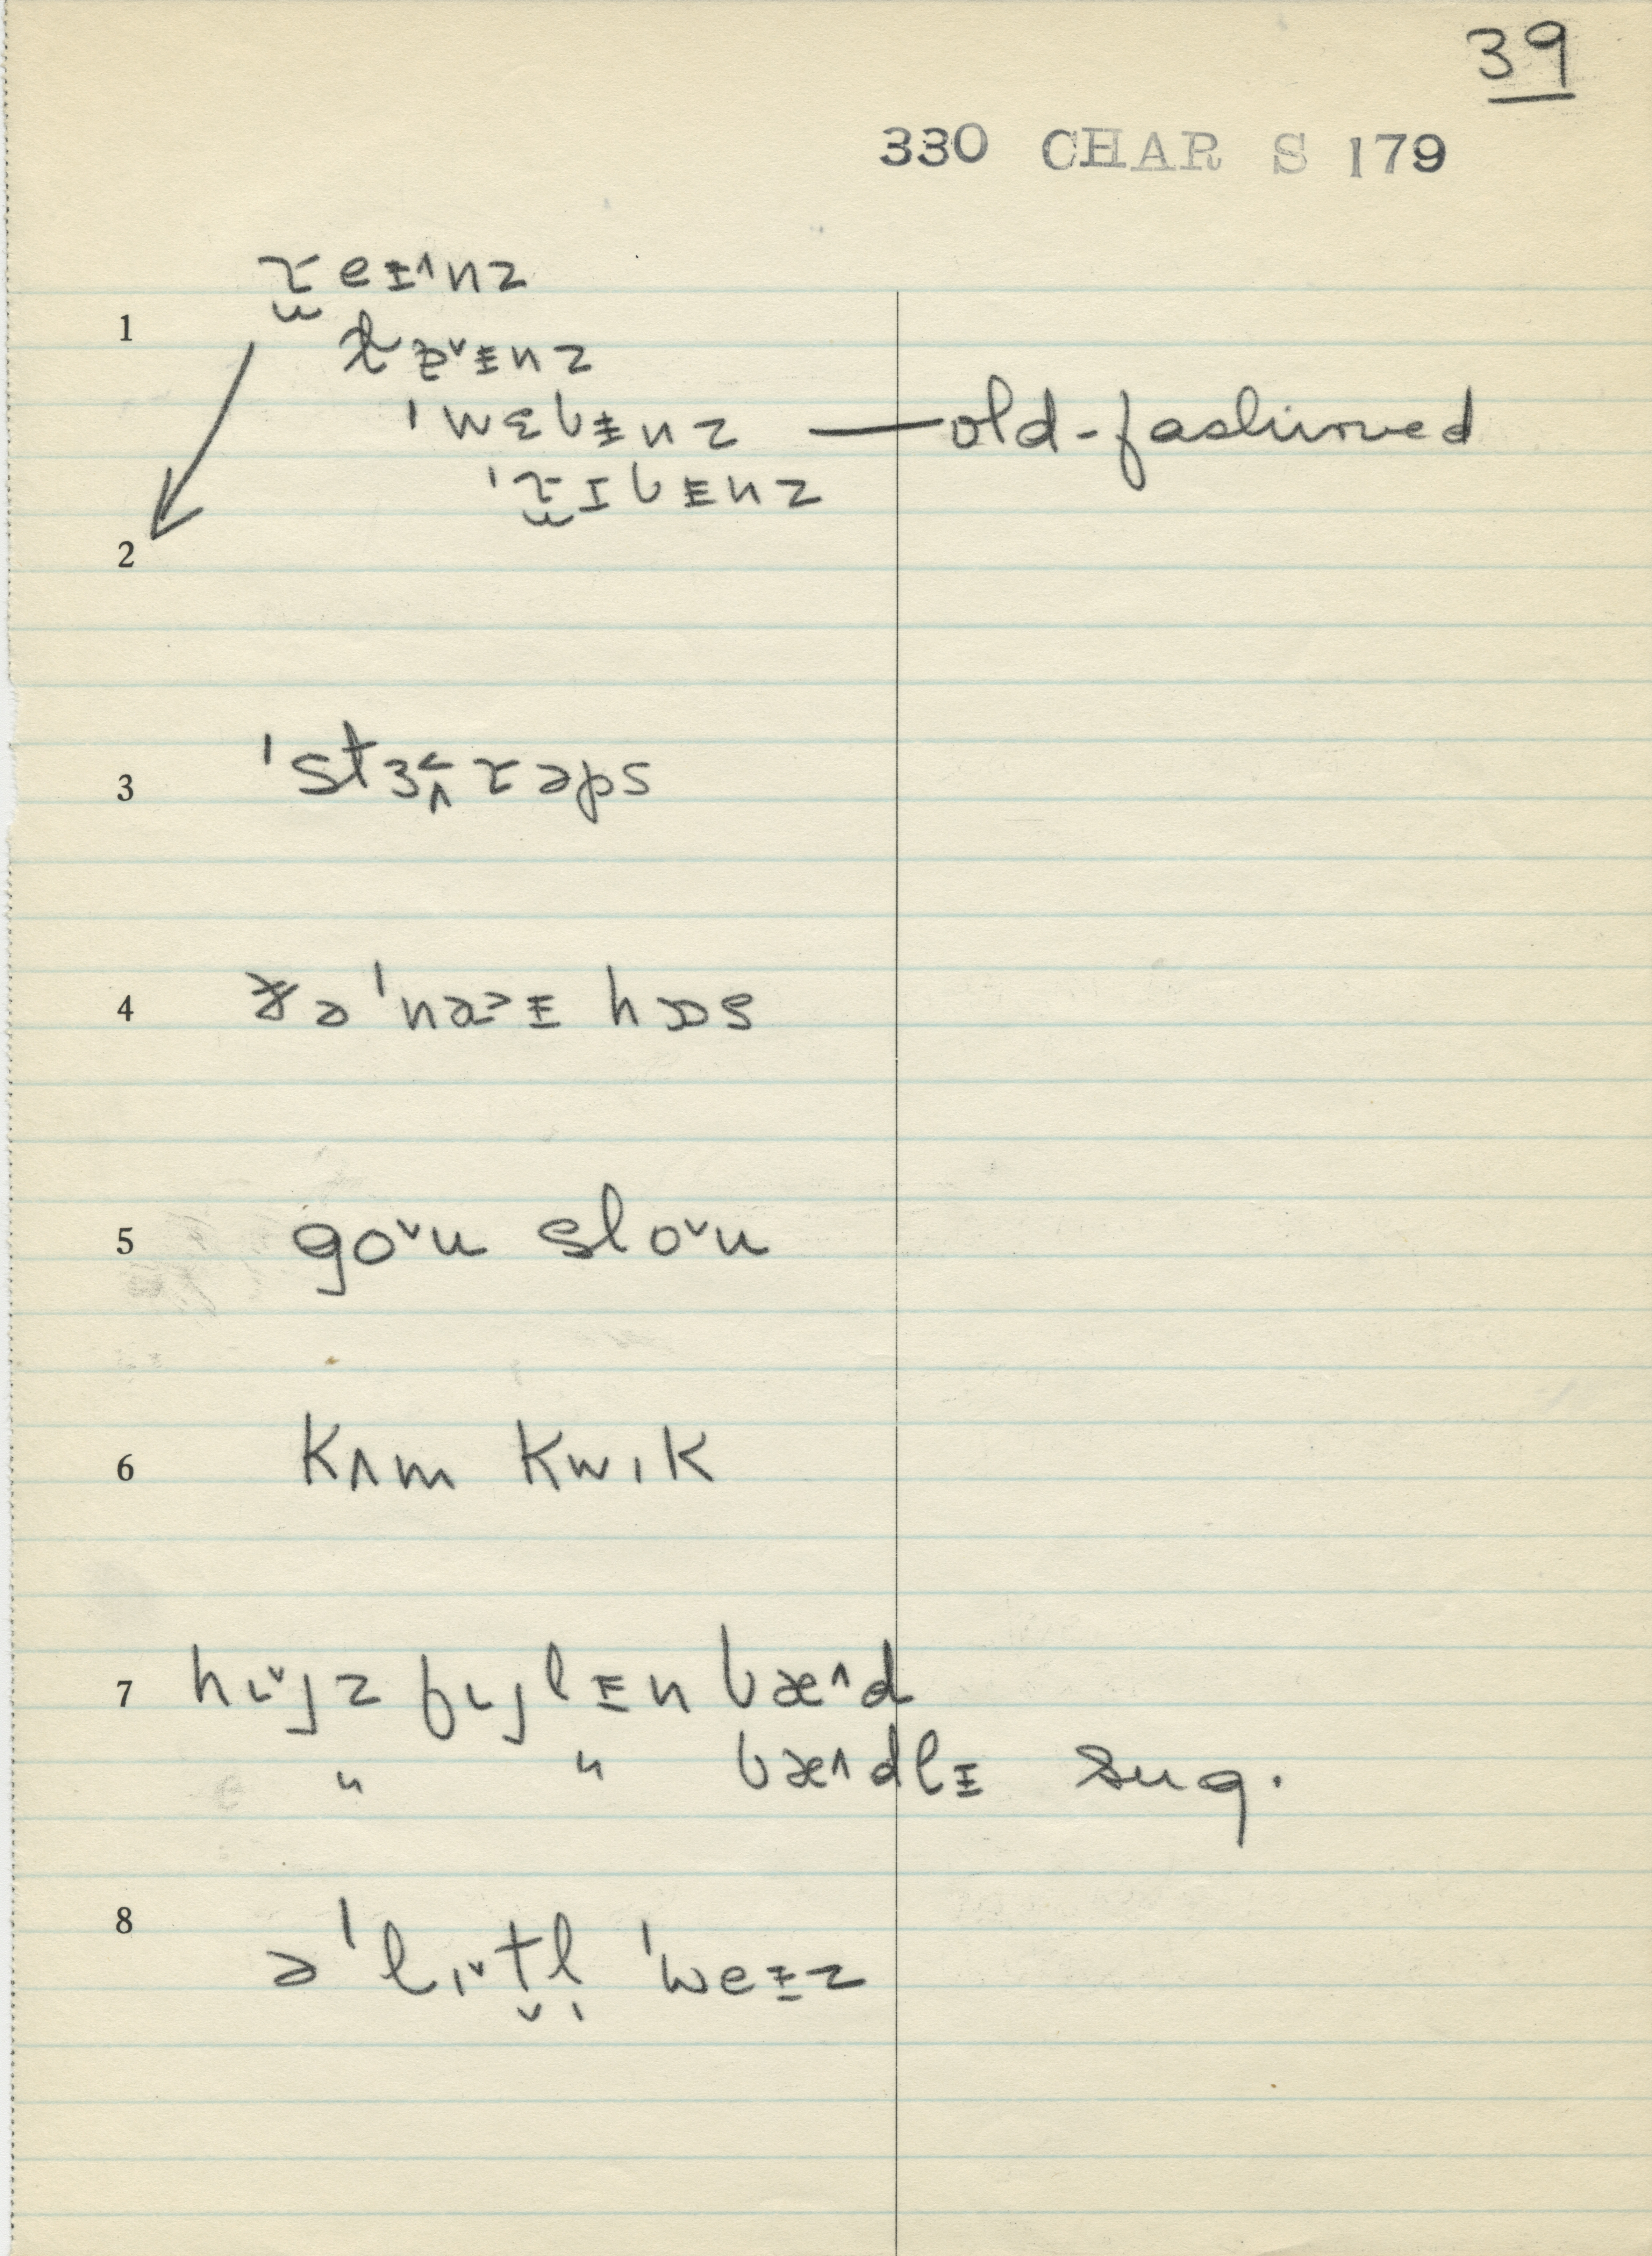 39
330 CHAR S 179
1 ɽ̮eɪ̵˄nz
ɫɐ˅ɪ̵nz
ˈwɛbɪ̵nz — old-fashioned
ˈɽ̮ɪbɪ̵nz
2
3 ˈstɜ˂˄ɽəps
4 ðə ˈnɒ˃ɪ̵ hɒs
5 go˅u slo˅u
6 kʌm kwɪk
7 hɪ˅jz fɪjlɪ̵n bæ˄d
" " bæ˄dlɪ̵ sug.
8 ə ˈlɪ˅t̬l̩ ˈweɪ̵z